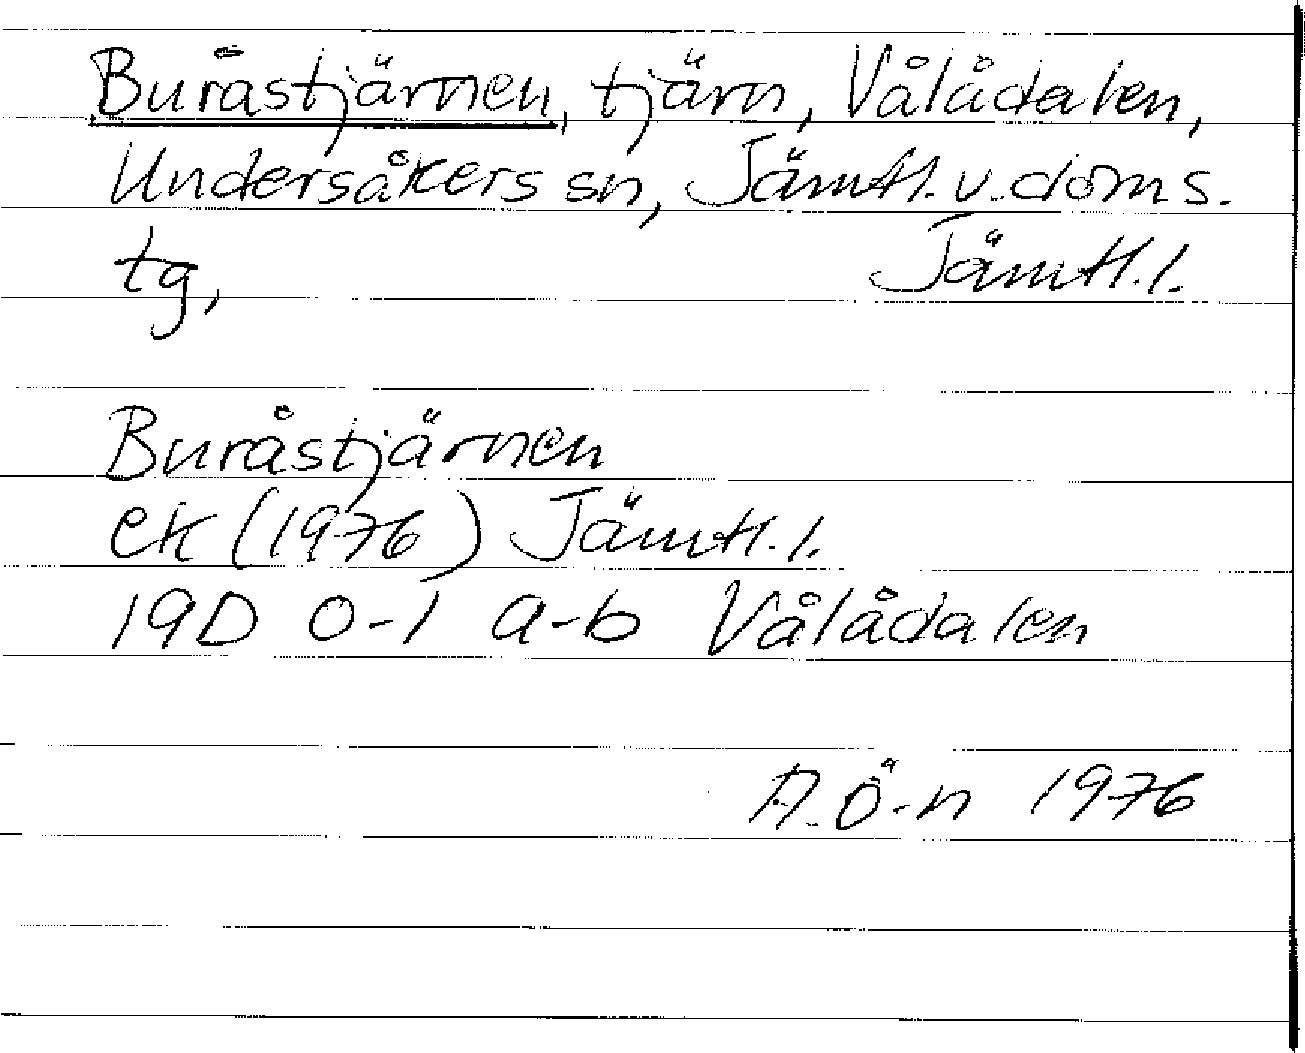 Buråstjärnen, tjärn, Vålådalen,
Undersåkers sn, Jämtl. v. doms.
tg, Jämtl. l.
Buråstjärnen
ek (1976) Jämtl. l.
19D 0-1 a-b Vålådalen
A. Ö-n 1976